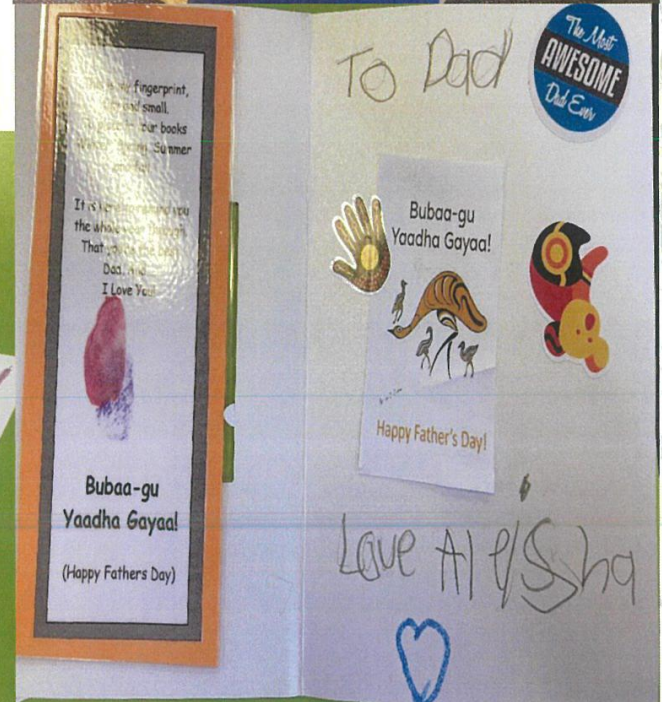 fingerprint,
small.
our books
Summer
It is
you
the whole
That
Dad,
I Love You
Bubaa-gu
Yaadha Gayaa!
(Happy Fathers Day)
To Dad
The Most
AWESOME
Dad Ever
Bubaa-gu
Yaadha Gayaa!
Happy Father's Day!
Love Aleissha